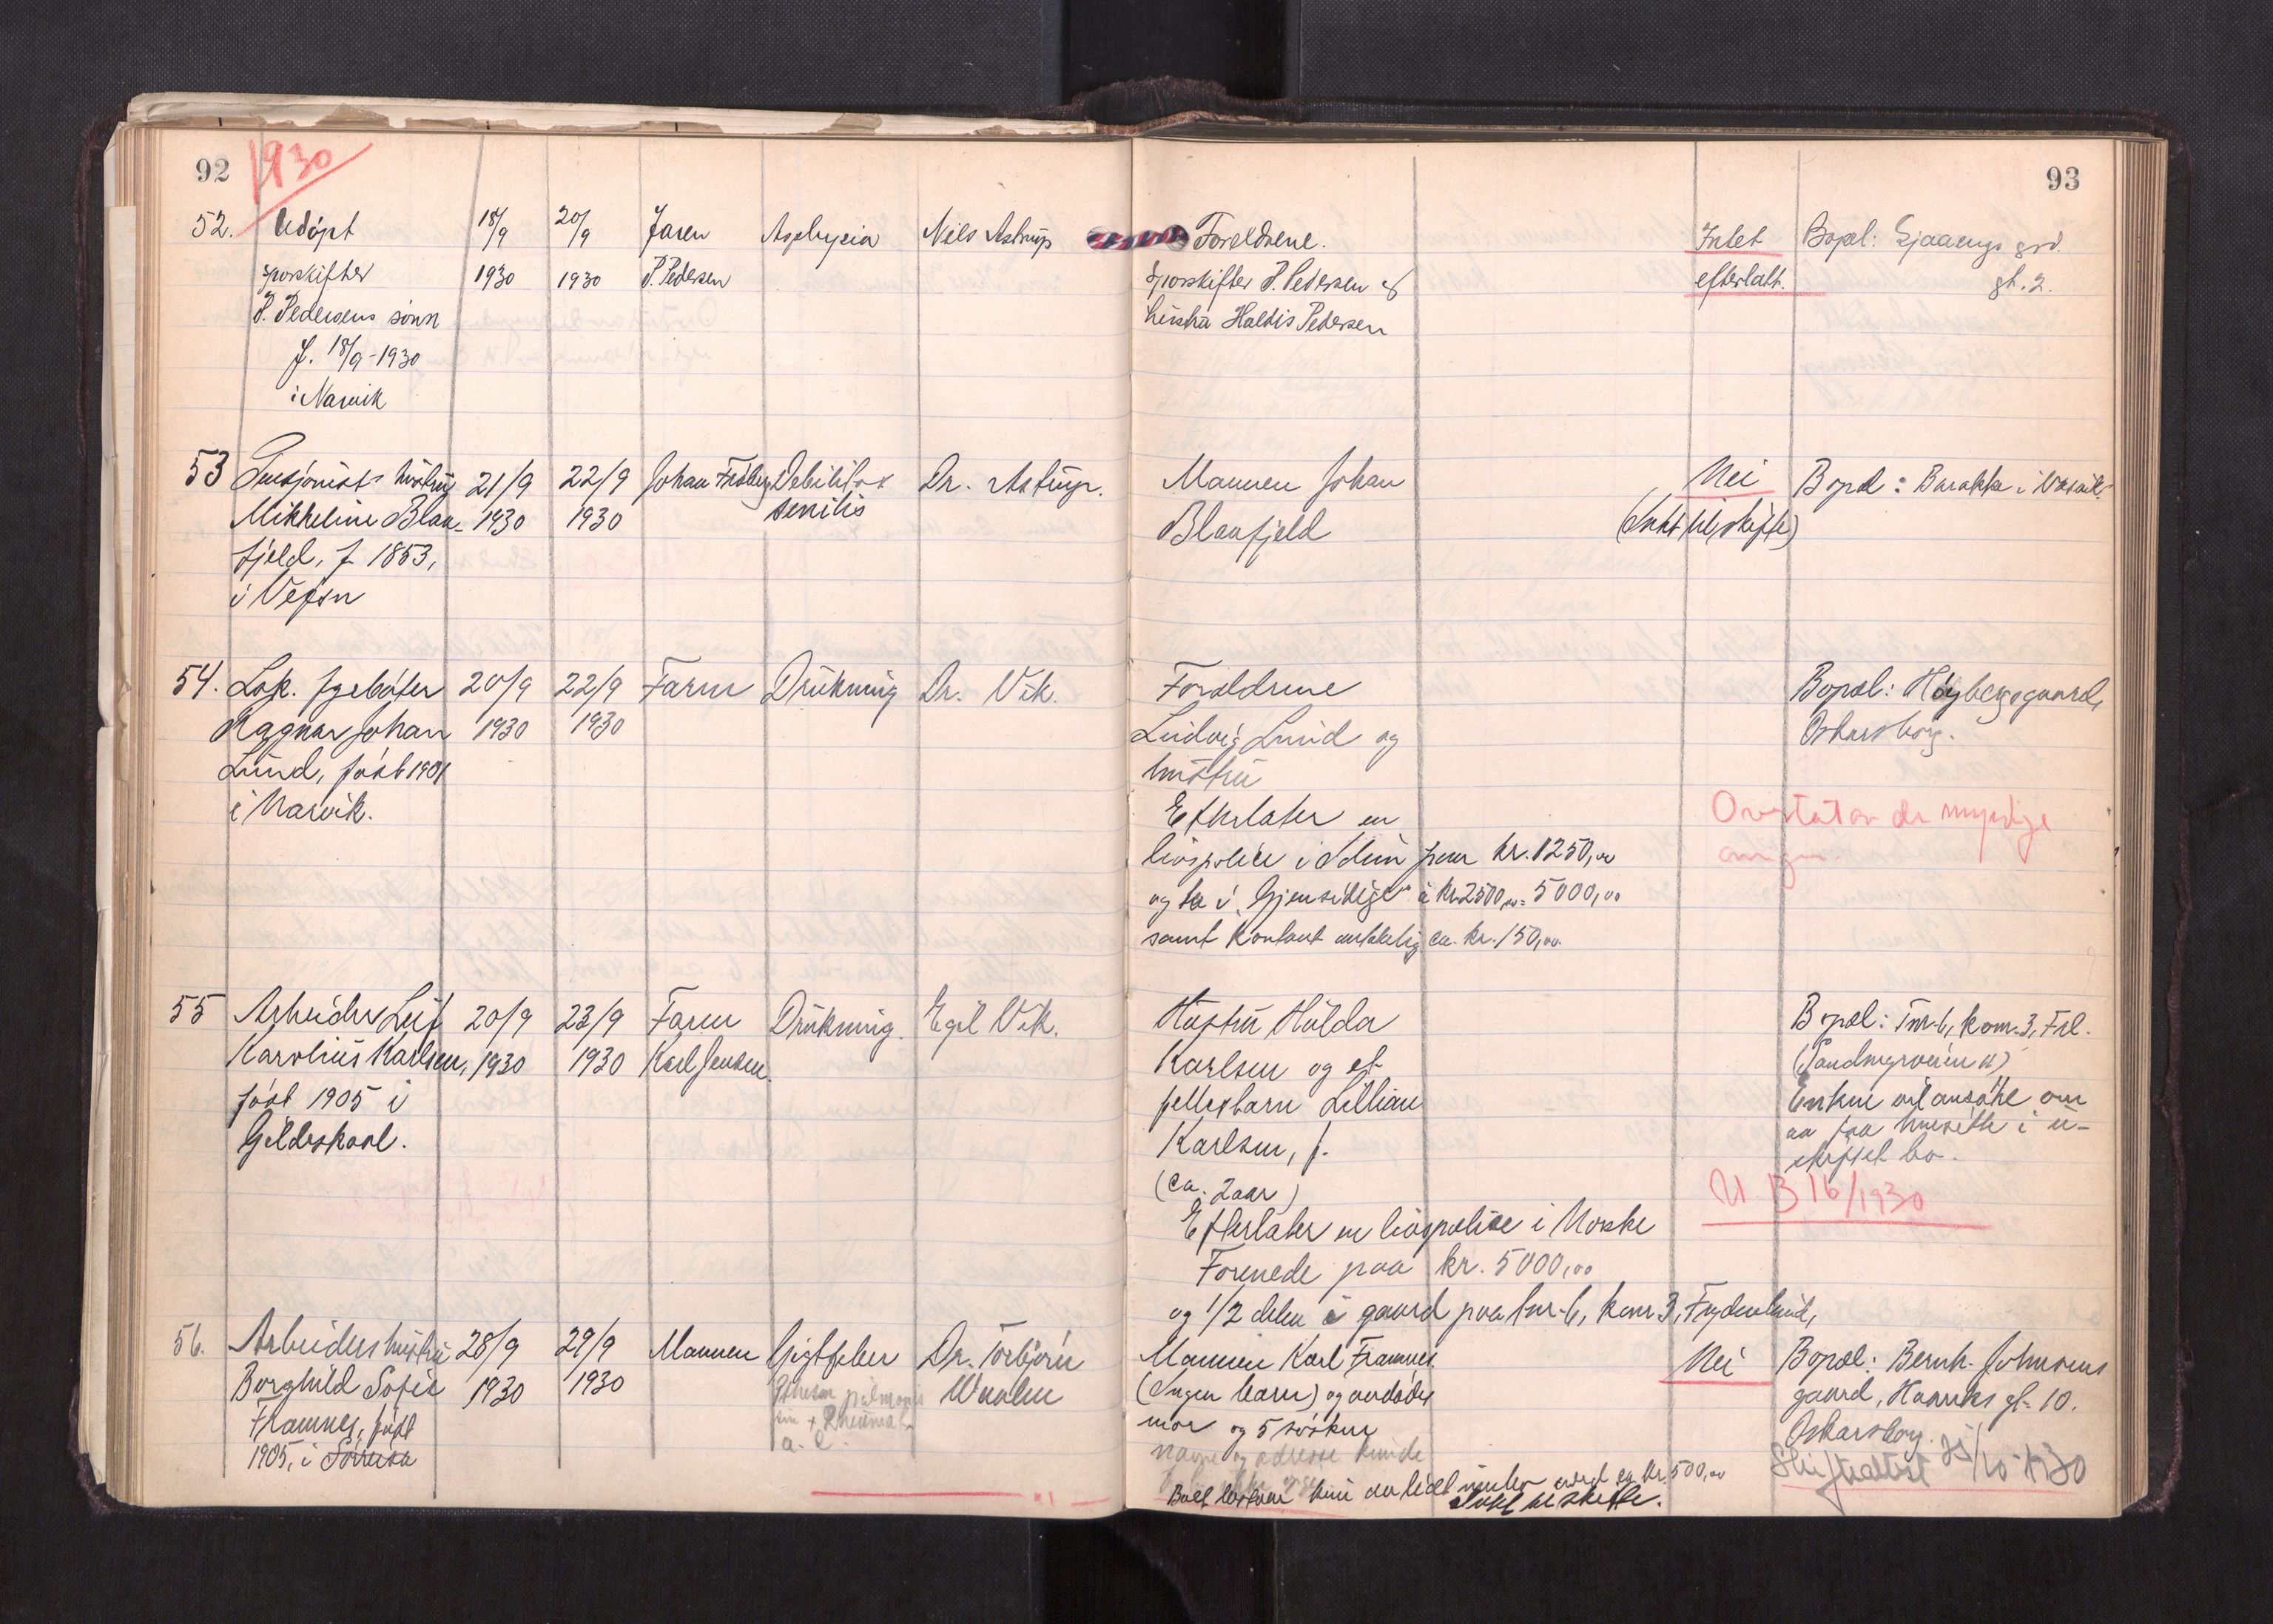 92
1930
52.
Udöpt
sporskifter
P. Pedersens sönn
f. 18/9-1930
i Narvik
18/9
1930
20/9
1930
Faren
P. Pedersen
Nils Astrup
53
hüstrü
Mikkeline Blaa-
fjeld, f 1853,
i Vefsn
21/9
1930
22/9
1930
Johan
Debilitas
senilis
Dr. Astrup.
54.
Lok. fyrböter
Ragnar Johan
Lünd, född 1901
i Narvik.
20/9
1930
22/9
1930
Faren
Drükning
Dr. Vik.
55
Arbeider Leif
Karolius Karlsen,
född 1905 i
Gildeskaal.
20/9
1930
23/9
1930
Faren
Karl Jensen.
Drükning.
Egil Vik.
56.
Arbeiders hüstrü
Borghild Sofie
Framnes, född
1905, i Sörreisa
28/9
1930
29/9
1930
Mannen
Gigtfeber
Dr. Torbjörn
93
Foreldrene.
Sporskifter P. Pedersen &
Haldis Pedersen
Intet
efterlatt.
Bopel:
gt. 2.
Mannen Johan
Blaafjeld
Nei
(Intet til skifte)
Bopel: Barakke i
Foreldrene
Lüdvig Lünd og
hüstrü
Efterlater en
livspolice i Idun paa kr. 1250,00
og to i "Gjensidige" à kr. 2500,00 = 5000,00
samt kontant ca. kr. 150,00.
Bopæl: Höybergsgaard,
Oskarsborg.
Hüstrü Hülda
Karlsen og et
fellesbarn Lillian
Karlsen, f.
(ca. 2 aar)
Efterlater en livspolise i Norske
Forenede paa kr. 5000,00
og 1/2 delen i gaard paa tnr. 6, kom. 3, Frydenlund,
Bopæl: Tnr. 6, kom. 3, Frl.
Enken vil ansöke om
aa faa hensitte i ü-
skiftet bo.
U. B 16/1930
Mannen Karl Framnes
(Ingen barn) og avdödes
mor og 5 söskne
navne og adresse
Boet
kr. 500,00
Intet til skifte.
Nei
Bopæl: Bernh. Johnsens
gaard, Haakons gt. 10.
Oskarsborg.
Skifteattest 25/10-1930